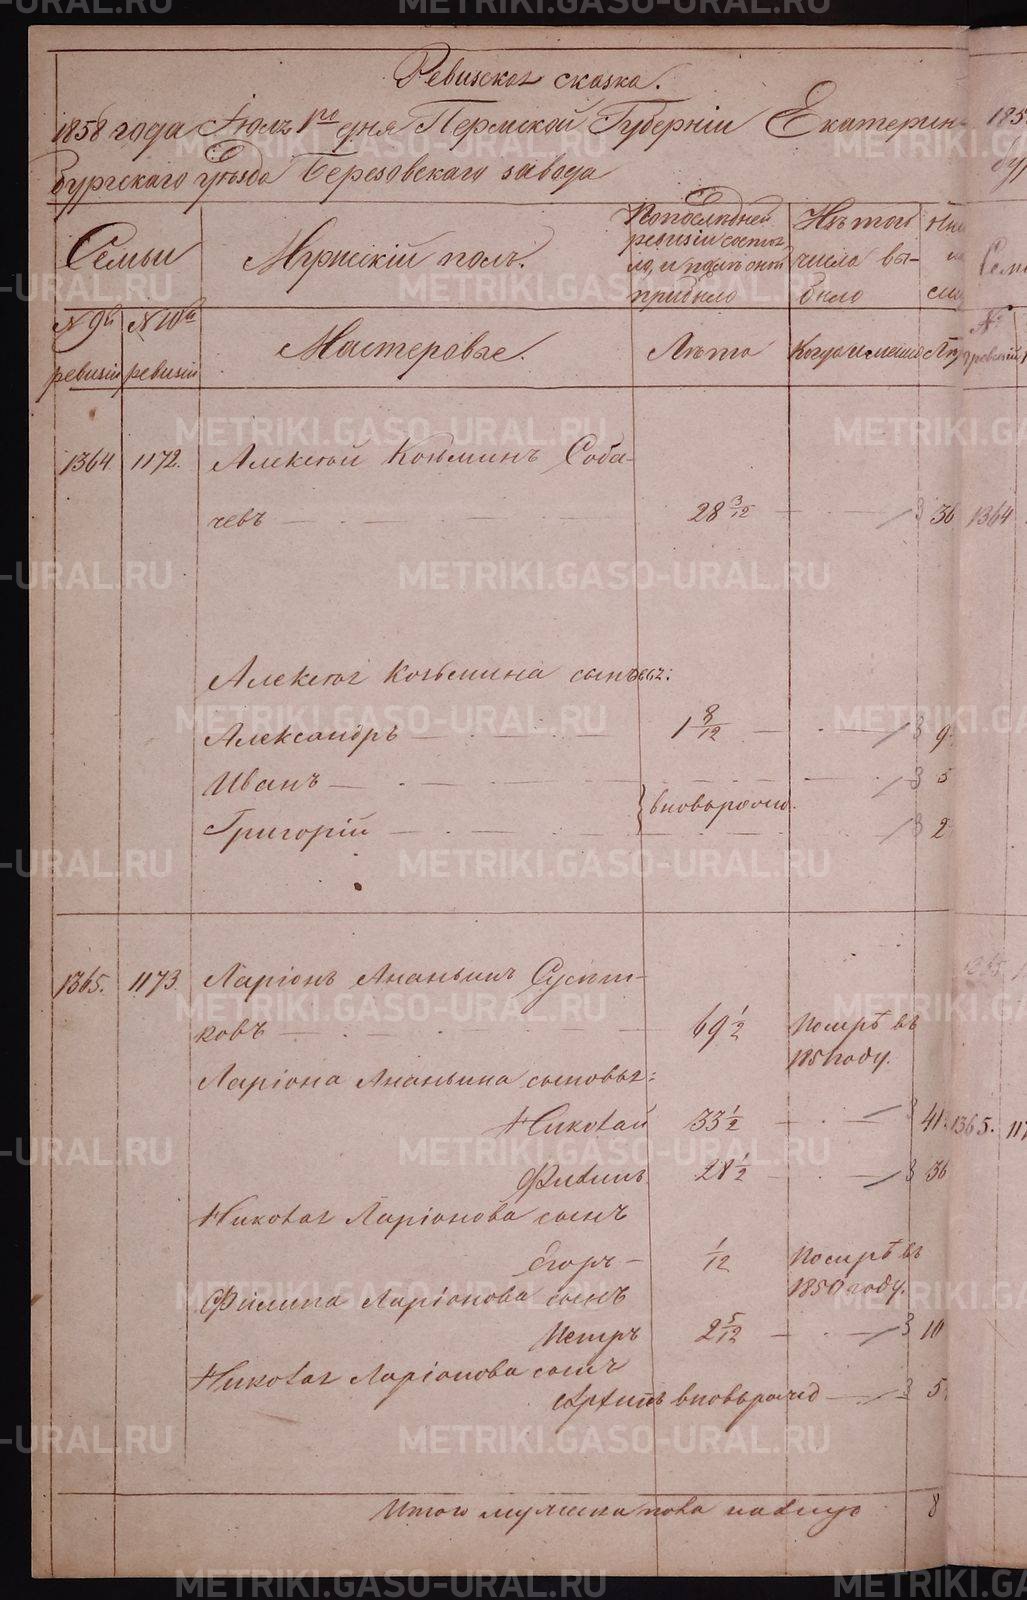 Ревизская сказка.
1858 года Июля 1го дня Пермской Губерніи Екатерин-
бургскаго уѣзда Березовскаго завода
Семьи
Мужскій полъ.
По послѣдней ревизіи состояло, и послѣ оной прибыло
Изъ того числа выбыло
№ 9й ревизіи
№ 10й ревизіи
Мастеровые.
Лѣта
Когда именно
1364. 1172. Алексѣй Козьминъ Соба-
чевъ 28 3/12 36 1364
Алексѣя Козьмина сыновья:
Александръ 1 8/12 9
Иванъ 5
вновьрожд.
Григорій 2
1365. 1173. Ларіонъ Ананьинъ Сусѣт-
ковъ 69 1/2 Помръ въ
185 году.
Ларіона Ананьина сыновья:
Николай 33 1/2 41 1365. 117
Филипъ 28 1/2 36
Николая Ларіонова сынъ
Егоръ 1/12 Помръ въ
1850 году.
Филипа Ларіонова сынъ
Петръ 2 5/12 10
Николая Ларіонова сынъ
вновьрожд 5
Итого мужска пола налицо 8
METRIKI.GASO-URAL.RU